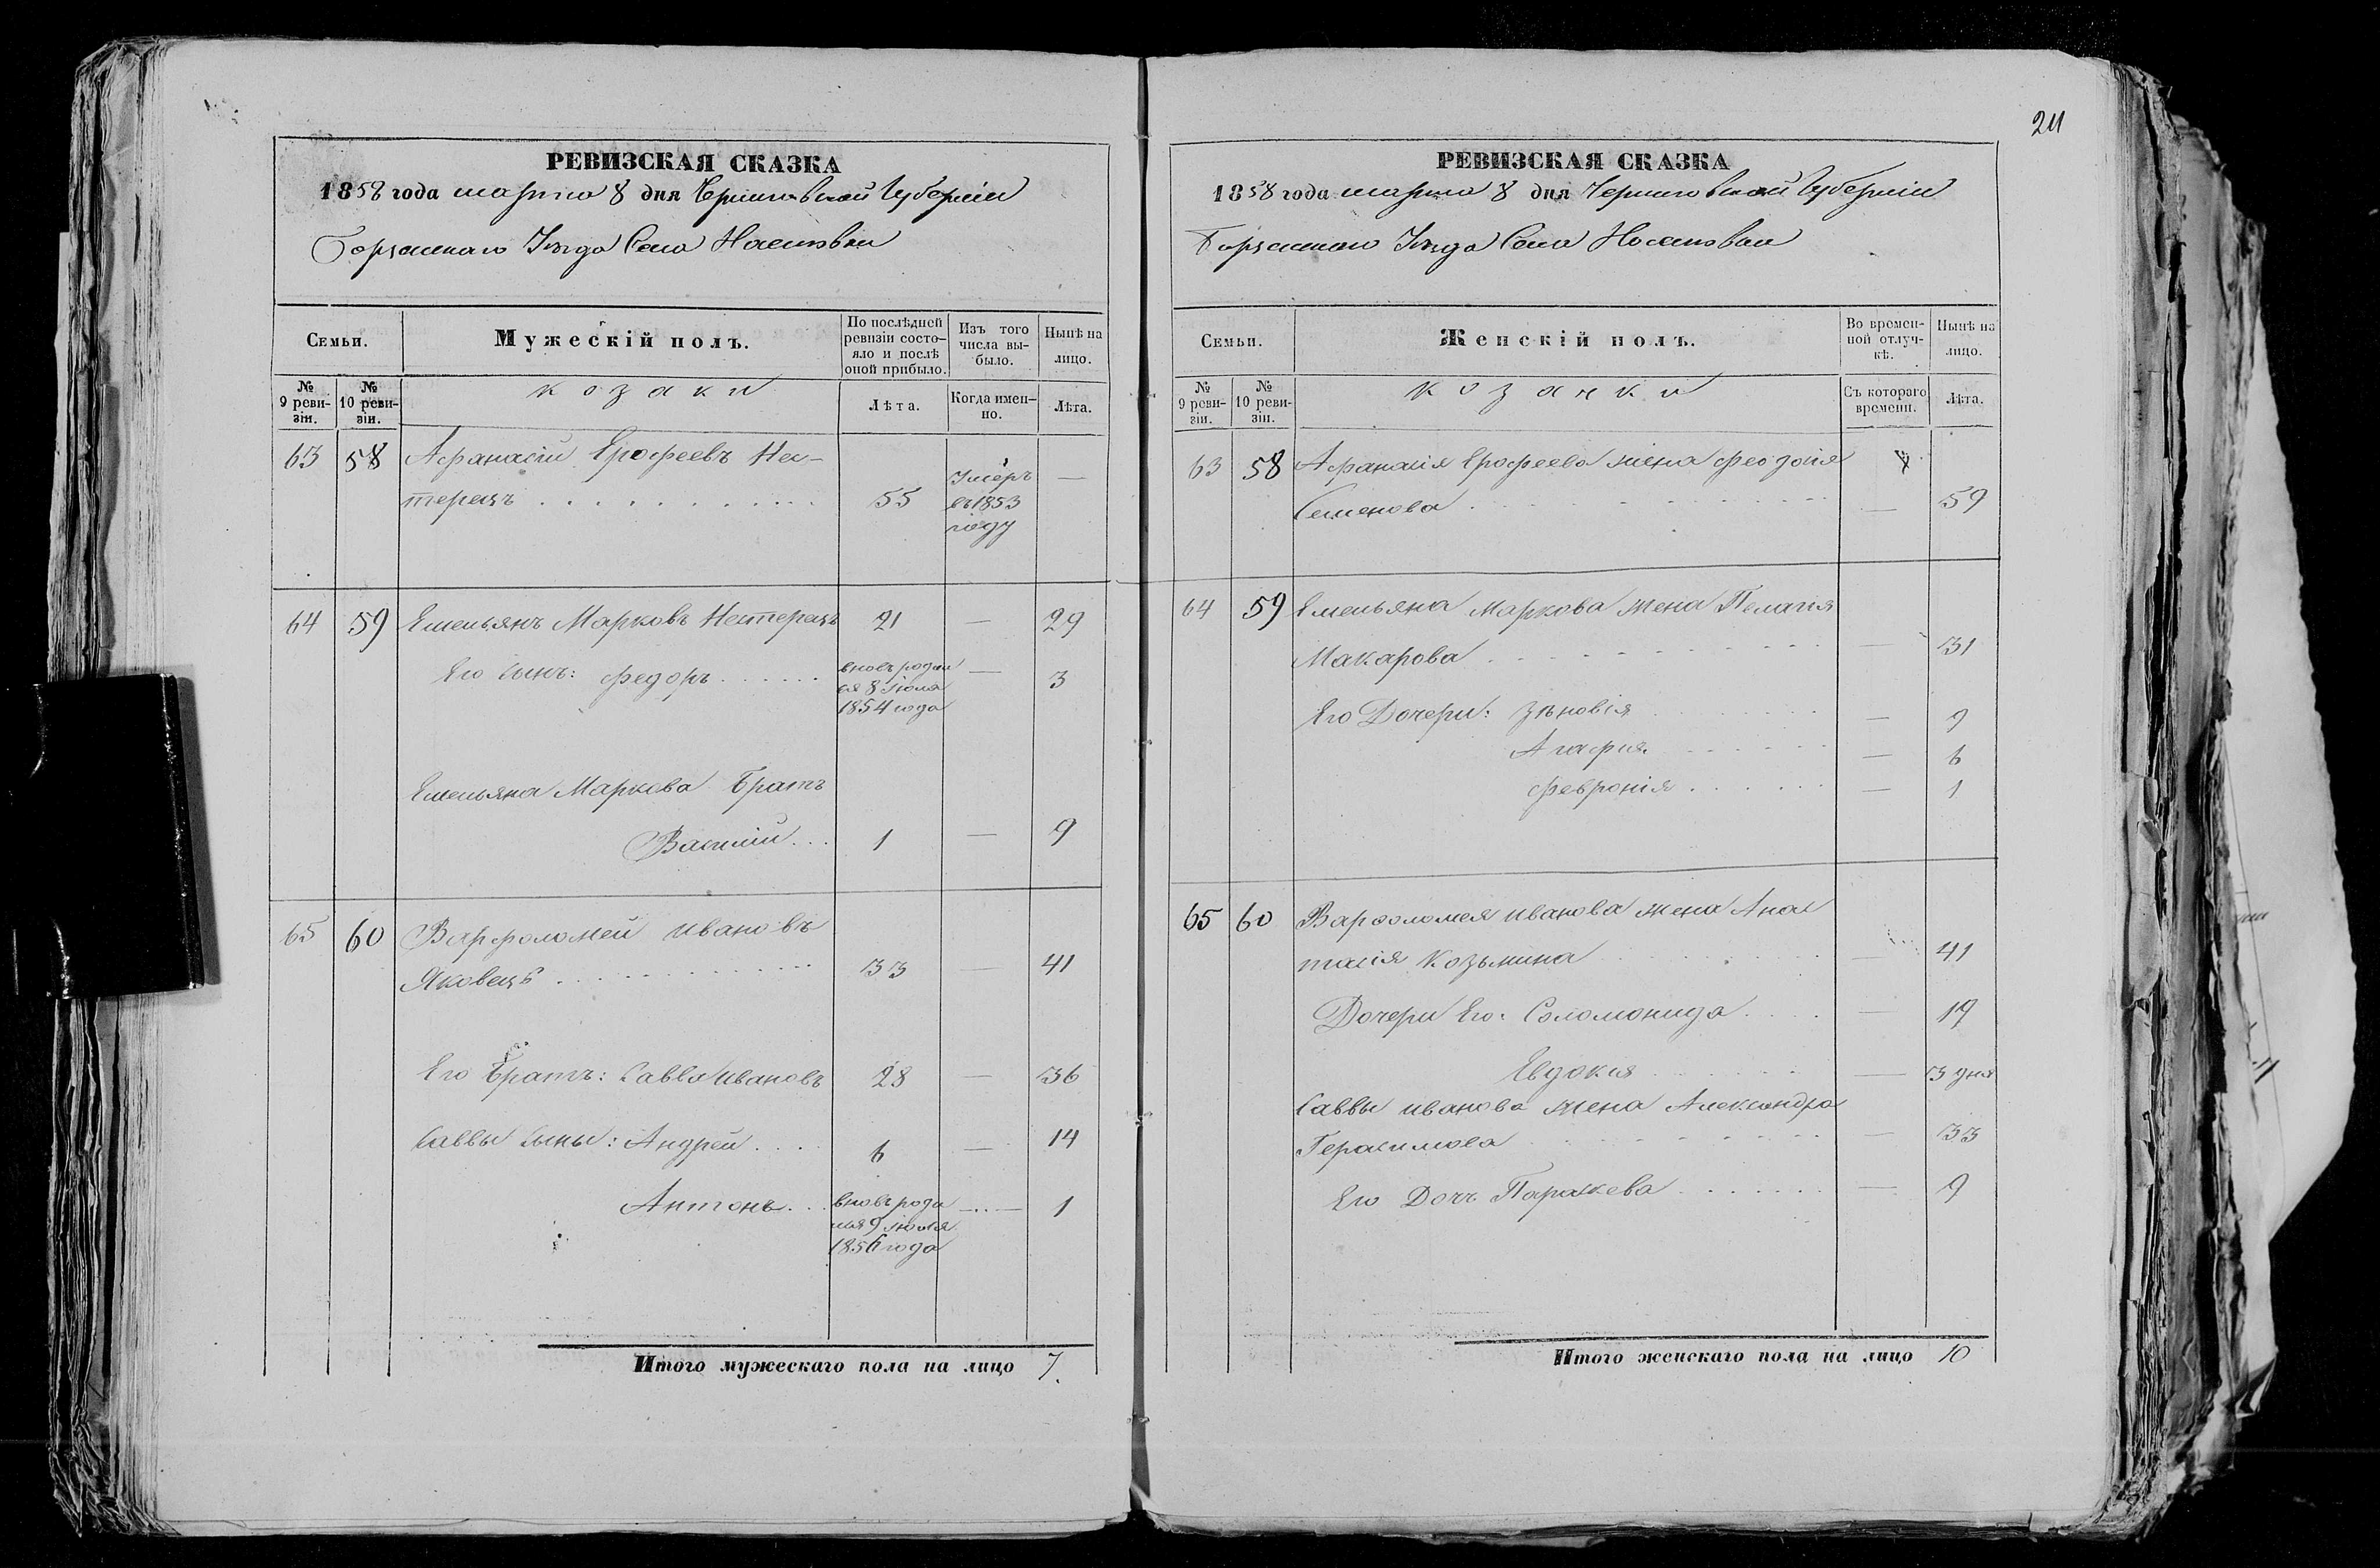 РЕВИЗСКАЯ СКАЗКА
1858 года марта 8 дня Черниговской Губерніи
Борзенскаго Уѣзда Села Носеловки
Семьи.
Мужескій полъ.
По послѣдней ревизіи состояло и послѣ оной прибыло.
Изъ того числа выбыло.
Нынѣ на лицо.
№ 9 ревизіи.
№ 10 ревизіи.
козаки
Лѣта.
Когда именно.
Лѣта.
63 58 Афанасій Ерофеевъ Нес-
терецъ 55 Умеръ въ 1853 году —
64 59 Емельянъ Марковъ Нестерецъ 21 — 29
Его сынъ: Федоръ вновь родился 8 Июня 1854 года — 3
Емельяна Маркова Братъ
Василій 1 — 9
65 60 Варфоломей Ивановъ
Яковецъ 33 — 41
Его Братъ: Савва Ивановъ 28 — 36
Саввы сыны: Андрей 6 — 14
Антонъ вновь родился 9 июля 1856 года — 1
Итого мужескаго пола на лицо 7.
211
РЕВИЗСКАЯ СКАЗКА
1858 года марта 8 дня Черниговской Губерніи
Борзенскаго Уѣзда Села Носеловки
Семьи.
Женскій полъ.
Во временной отлучкѣ.
Нынѣ на лицо.
№ 9 ревизіи.
№ 10 ревизіи.
козачки
Съ котораго времени.
Лѣта.
63 58 Афанасія Ерофеева жена Феодосія
Семенова — 59
64 59 Емельяна Маркова жена Пелагія
Макарова — 31
Его Дочери: Зѣновія — 9
Агафія — 6
Февронія — 1
65 60 Варфоломея Иванова жена Анас
тасія Козьмина — 41
Дочери Его: Соломонида — 19
Евдокія — 3 дня
Саввы Иванова жена Александра
Герасимова — 33
Его Дочь Параскева — 9
Итого женскаго пола на лицо 10